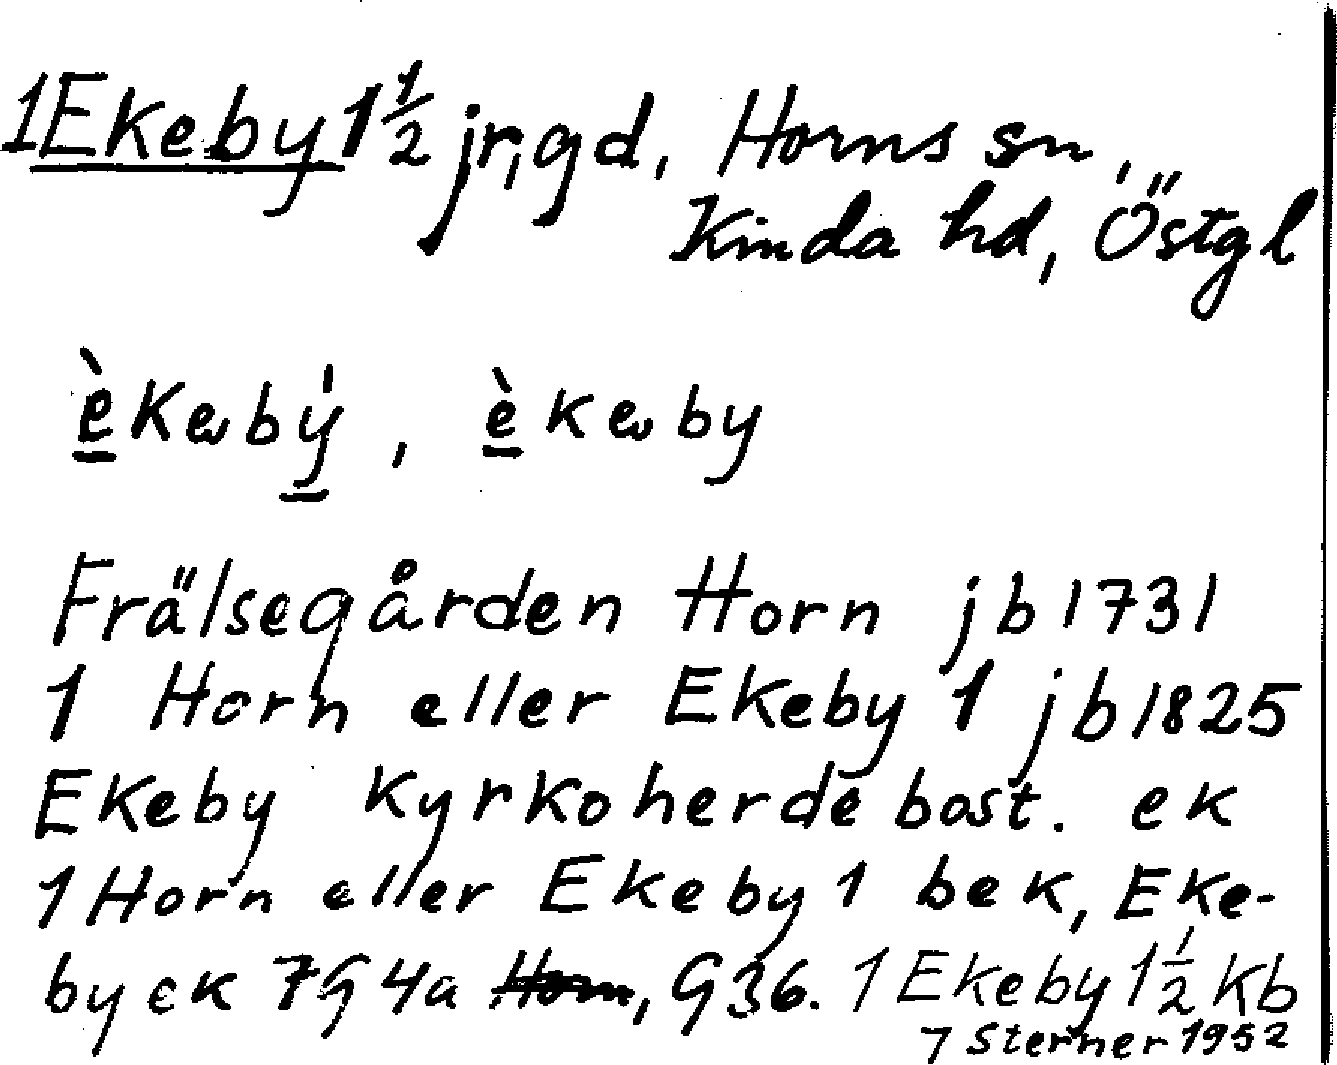 1 Ekeby 1 1/2 jr, gd, Horns sn,
Kinda hd, Östgl
èkebý, èkeby
Frälsegården Horn jb 1731
1 Horn eller Ekeby 1 jb 1825
Ekeby kyrkoherdebost. ek
1 Horn eller Ekeby 1 bek, Eke-
by ek 7G4a Horn, G36. 1 Ekeby 1 1/2 Kb
7 Sterner 1952